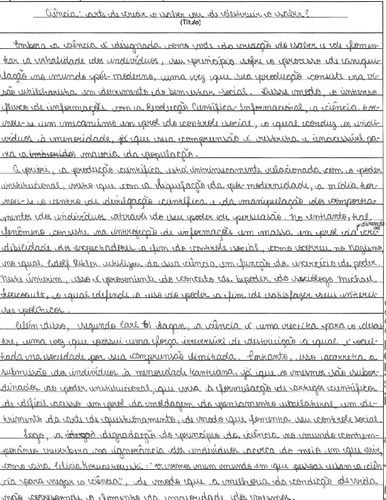 Ciência: arte de criar o saber ou de destruir o saber?
(Título)
Embora a ciência é designada como arte da criação do saber e de fomen-
tar a vitalidade dos indivíduos, seu princípio sofre o processo de
lação no mundo pós-moderno, uma vez que sua produção consiste na vi-
são utilitarista em detrimento do bem estar social. Desse modo, o intenso
fluxo de informações com a Revolução Científica-Informacional, a ciência tor-
nou-se um mecanismo em prol do controle social, o qual conduz os indi-
víduos à menoridade, já que sua compreensão é restrita e inacessível pa-
ra a maioria da população.
A priori, a produção científica está intrinsecamente relacionada com o poder
institucional, visto que com a liquefação da pós-modernidade, a mídia tor-
nou-se o centro de divulgação científica e da manipulação dos comporta-
mentos dos indivíduos através do seu poder de persuasão. No entanto, tal
fenômeno consiste na introjeção de informações em massa em prol da
dibilidade dos espectadores a fim do controle social, como ocorreu no Nazismo,
no qual Adolf Hitler utilizou da sua ciência em função do exercício de poder.
Neste ínterim, isso é proveniente do conceito de do sociólogo Michael
Foucault, o qual defende o uso do poder a fim de satisfazer seus interes-
ses políticos.
Além disso, segundo Carl Sagan, a ciência é uma receita para o desas-
tre, uma vez que possui uma força de destruição a qual é
tada na sociedade por sua compreensão limitada. Portanto, isso acarreta a
submissão dos indivíduos à menoridade kantiana, já que os mesmos são subor-
dinados ao poder institucional, que visa a formulação de artigos científicos
de difícil acesso em prol da moldagem do pensamento unilateral, em de-
trimento da arte de questionamento, de modo que fomenta seu controle social.
Logo, a degradação do princípio da ciência no mundo contem-
porâneo na ignorância dos indivíduos acerca do meio em que vive,
como cita : "vivemos num mundo em que pessoas usam a ciên-
cia para negar a ciência", de modo que a melhoria da condição de vida
não corresponde o fomento da dos mesmos.